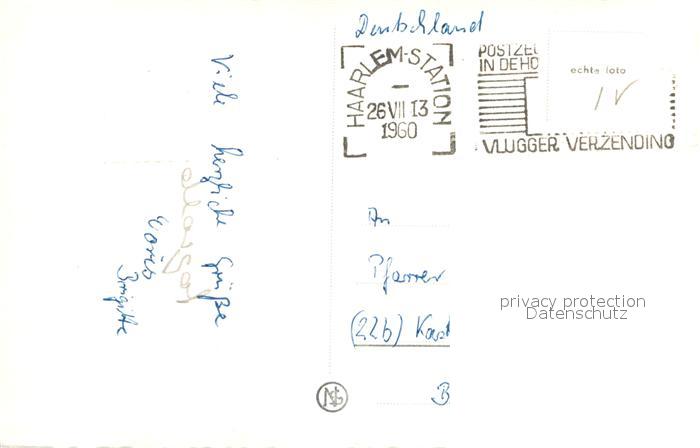 Deutschland
HAARLEM-STATION
26 VII 13
1960
POSTZE
IN DE HO
VLUGGER VERZENDING
echte foto
Viele herzliche Grüße
Brigitte
An
Pfarrer
(22b)
B
privacy protection
Datenschutz